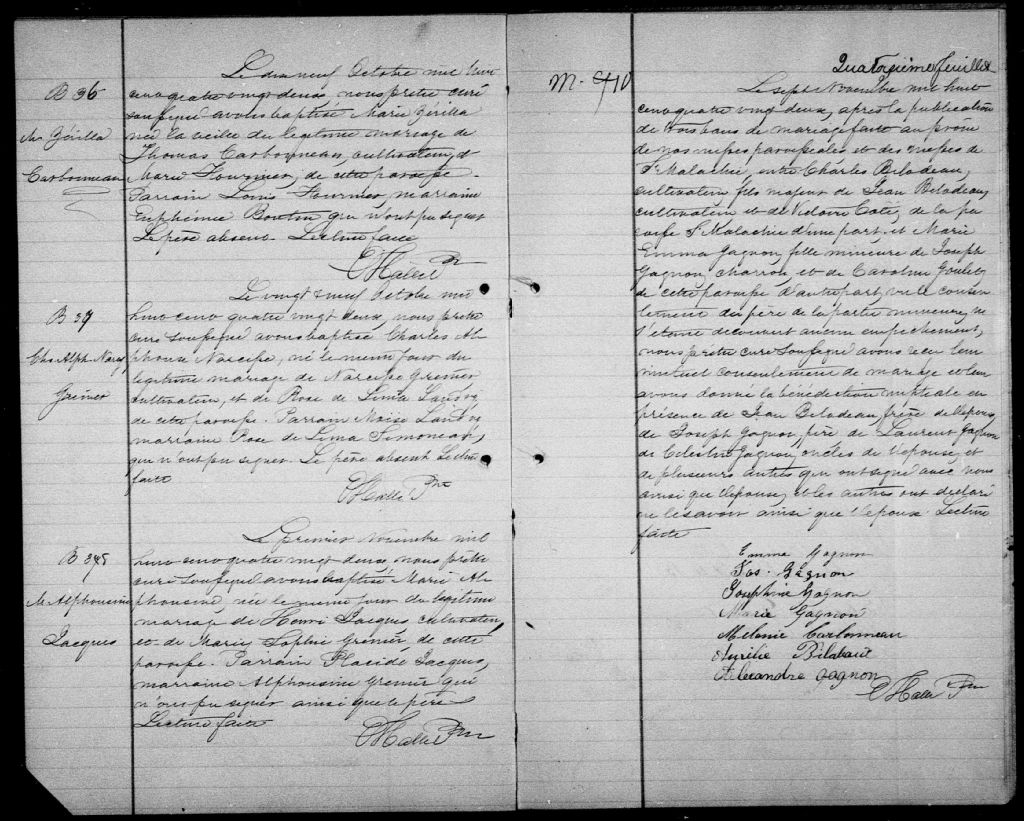 B 36
M. Zérilla
Carbonneau
Le dix neuf Octobre mil huit
cent quatre vingt deux, nous prêtre curé
soussigné avons baptisé Marie Zérilla
née la veille du légitime mariage de
Thomas Carbonneau, cultivateur, et
Marie Fournier, de cette paroisse.
Parrain Louis Fournier, marraine
Euphémie Boutin qui n'ont pu signer
Le père absent. Lecture faite
B 37
Chs Alph. Narcs
Grenier
Le vingt & neuf Octobre mil
huit cent quatre vingt deux, nous prêtre
curé soussigné avons baptisé Charles Al-
phonse Narcisse, né le même jour du
légitime mariage de Narcisse Grenier
cultivateur, et de Rose de Lima Landry
de cette paroisse. Parrain Moïse Landry
marraine Rose de Lima Simoneau,
qui n'ont pu signer. Le père absent Lecture
faite
B 38
M. Alphonsine
Jacques
Le premier Novembre mil
huit cent quatre vingt deux, nous prêtre
curé soussigné avons baptisé Marie Al-
phonsine, née le même jour du légitime
mariage de Henri Jacques cultivateur,
et de Marie Sophie Grenier, de cette
paroisse. Parrain Placide Jacques,
marraine Alphonsine Grenier qui
n'ont pu signer ainsi que le père
Lecture faite
Quatorzième feuillet
M. 10
Le sept Novembre mil huit
cent quatre vingt deux, après la publication
de trois bans de mariage faite au prône
de nos messes paroissiales et des messes de
St Malachie, entre Charles Bilodeau,
cultivateur fils majeur de Jean Bilodeau,
cultivateur et de Victoire Coté, de la pa
roisse St Malachie d'une part, et Marie
Emma Gagnon, fille mineure de Joseph
Gagnon, charron, et de Caroline Goulet
de cette paroisse d'autre part, vu le consen
tement du père de la partie mineure, ne
s'étant découvert aucun empêchement,
nous prêtre curé soussigné avons reçu leur
mutuel consentement de mariage et leur
avons donné la bénédiction nuptiale en
présence de Jean Bilodeau, frère de l'époux,
de Joseph Gagnon, père de Laurent Gagnon
de Célestin Gagnon, oncles de l'épouse, et
de plusieurs autres qui ont signé avec nous
ainsi que l'épouse, et les autres ont déclaré
ne le savoir ainsi que l'époux. Lecture
faite
Emma Gagnon
Jos. Gagnon
Joséphine Gagnon
Marie Gagnon
Mélanie Carbonneau
Aurélie
Alexandre Gagnon